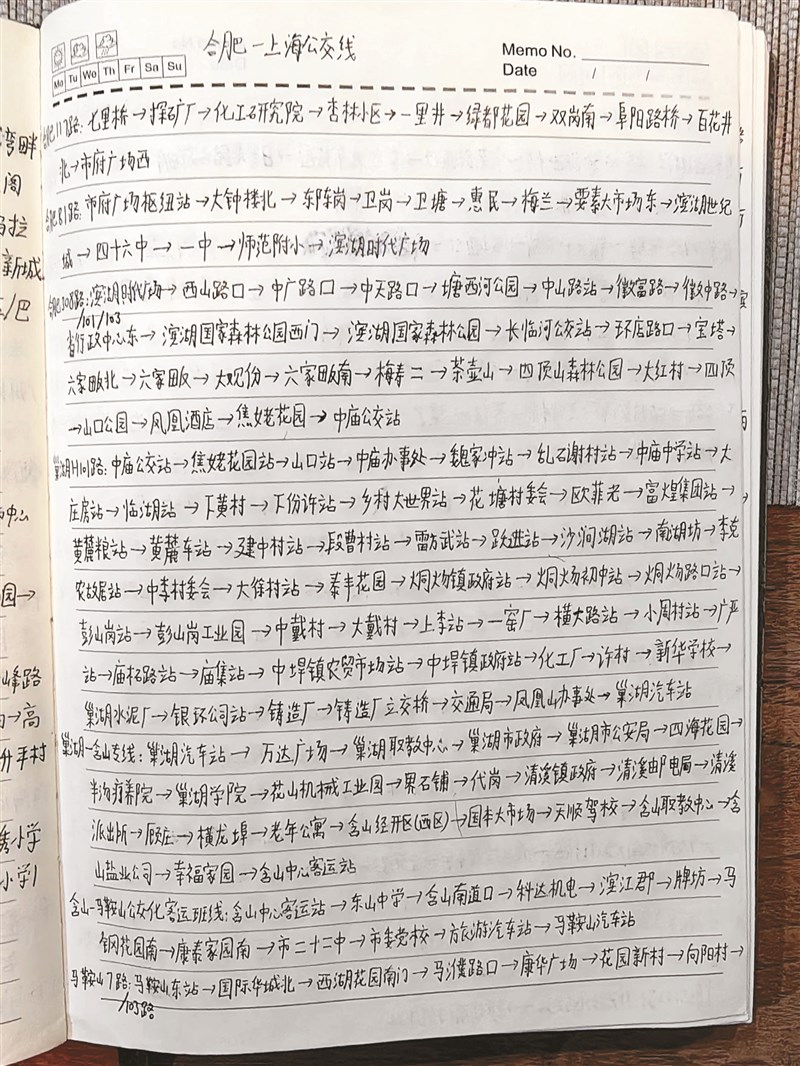 合肥—上海公交线
Memo No.
Date / /
Mo Tu We Th Fr Sa Su
合肥117路: 七里桥→探矿厂→化工研究院→杏林小区→一里井→绿都花园→双岗南→阜阳路桥→百花井
北→市府广场西
合肥81路: 市府广场枢纽站→大钟楼北→东陈岗→卫岗→卫塘→惠民→梅兰→要素大市场东→滨湖世纪
城→四十六中→一中→师范附小→滨湖时代广场
合肥308路: 滨湖时代广场→西山路口→中广路口→中天路口→塘西河公园→中山路站→徽富路→徽中路→
/101/103
省行政中心东→滨湖国家森林公园西门→滨湖国家森林公园→长临河公交站→环店路口→宝塔→
六家畈北→六家畈→大观份→六家畈南→梅寿二→茶壶山→四顶山森林公园→大红村→四顶
→山口公园→凤凰酒店→焦姥花园→中庙公交站
巢湖H101路: 中庙公交站→焦姥花园站→山口站→中庙办事处→魏家冲站→乱石谢村站→中庙中学站→大
庄房站→临湖站→下黄村→下份许站→乡村大世界站→花塘村委会→欧菲老→富煌集团站→
黄麓粮站→黄麓车站→建中村站→段曹村站→雷方武站→跃进站→沙涧湖站→南湖坊→李克
农故居站→中李村委会→大徐村站→泰丰花园→烔炀镇政府站→烔炀初中站→烔炀路口站→
彭山岗站→彭山岗工业园→中戴村→大戴村→上李站→一窑厂→横大路站→小周村站→广严
站→庙石路站→庙集站→中垾镇农贸市场站→中垾镇政府站→化工厂→许村→新华学校→
巢湖水泥厂→银环公司站→铸造厂→铸造厂立交桥→交通局→凤凰山办事处→巢湖汽车站
巢湖—含山专线: 巢湖汽车站→万达广场→巢湖职教中心→巢湖市政府→巢湖市公安局→四海花园→
半汤疗养院→巢湖学院→花山机械工业园→果石铺→代岗→清溪镇政府→清溪邮电局→清溪
派出所→顾庄→横龙埠→老年公寓→含山经开区(西区)→国本大市场→天顺驾校→含山职教中心→含
山盐业公司→幸福家园→含山中心客运站
含山—马鞍山公交化客运班线: 含山中心客运站→东山中学→含山南道口→科达机电→滨江郡→牌坊→马
钢花园南→康泰家园南→市二十二中→市委党校→旅游汽车站→马鞍山汽车站
马鞍山7路: 马鞍山东站→国际华城北→西湖花园南门→马濮路口→康华广场→花园新村→向阳村→
/103路